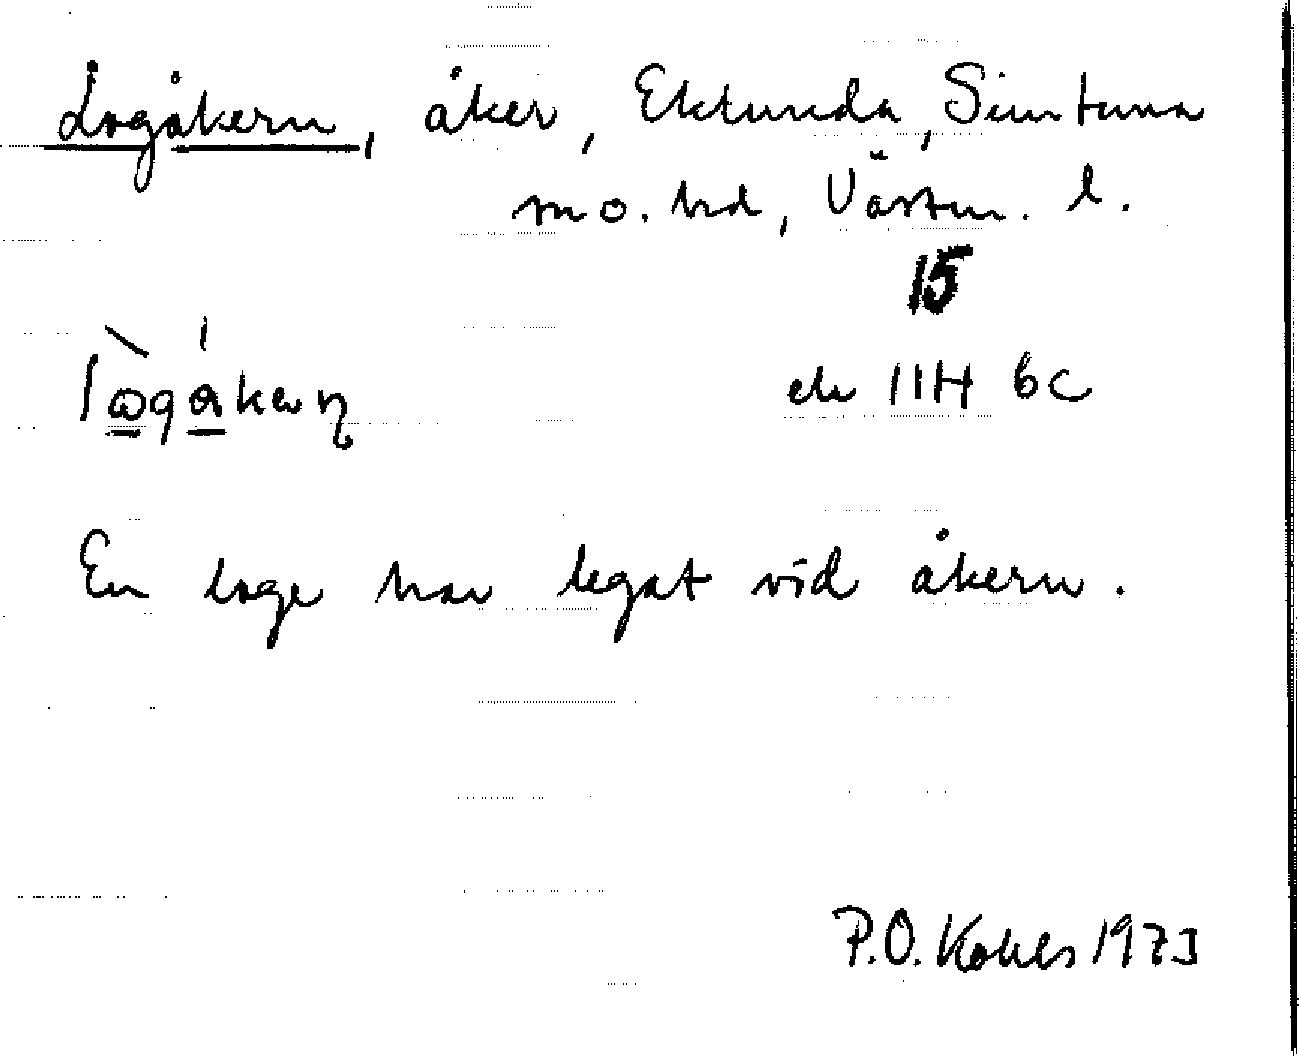 Logåkern, åker, Eklunda, Simtuna
s o. hd, Västm. l.
15
ek 11H 6c
En loge har legat vid åkern.
P.O. 1973